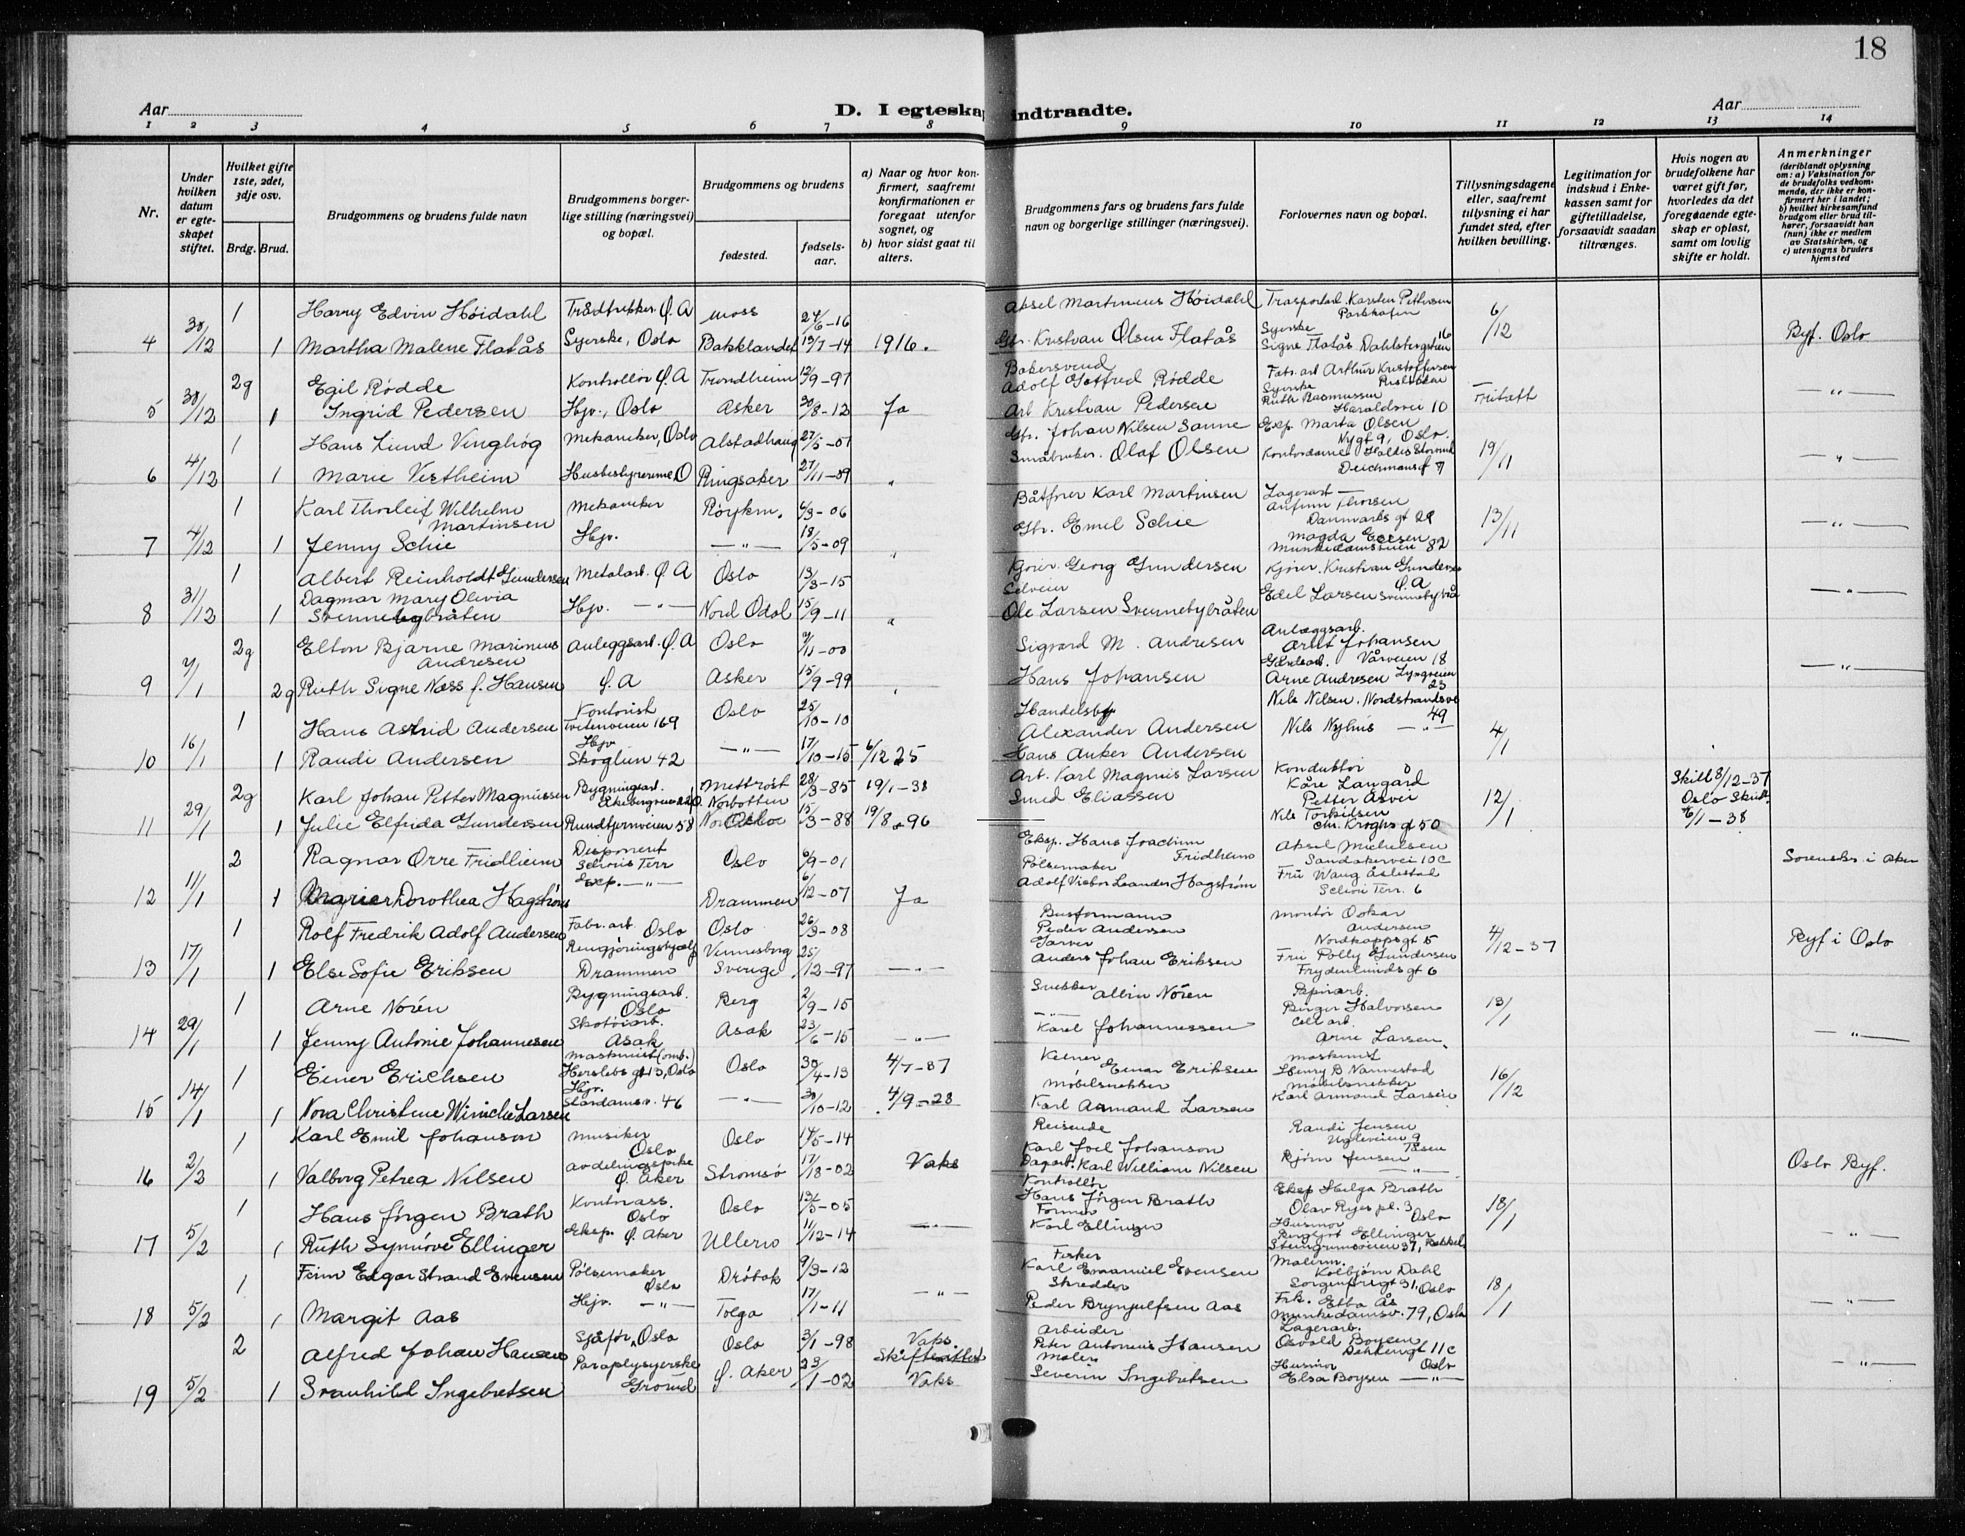 18
Aar
D. I egteskap indtraadte.
Aar
1 2 3 4 5 6 7 8 9 10 11 12 13 14
Nr.
Under hvilken datum er egteskapet stiftet.
Hvilket gifte 1ste, 2det, 3dje osv.
Brdg. Brud.
Brudgommens og brudens fulde navn
Brudgommens borgerlige stilling (næringsvei) og bopæl.
Brudgommens og brudens
fødested.
fødselsaar.
a) Naar og hvor konfirmert, saafremt konfirmationen er foregaat utenfor sognet, og
b) hvor sidst gaat til alters.
Brudgommens fars og brudens fars fulde navn og borgerlige stillinger (næringsvei).
Forlovernes navn og bopæl.
Tillysningsdagene eller, saafremt tillysning ei har fundet sted, efter hvilken bevilling.
Legitimation for indskud i Enkekassen samt for giftetilladelse, forsaavidt saadan tiltrænges.
Hvis nogen av brudefolkene har været gift før, hvorledes da det foregaaende egteskap er opløst, samt om lovlig skifte er holdt.
Anmerkninger
(deriblandt oplysning om: a) Vaksination for de brudefolks vedkommende, der ikke er konfirmert her i landet; b) hvilket kirkesamfund brudgom eller brud tilhører, forsaavidt han (hun) ikke er medlem av Statskirken, og c) utensogns bruders hjemsted
4 30/12 1 Harry Edvin Høidahl Ø. A Moss 24/6-16 Aksel Martinius Høidahl Karsten Pettersen 6/12
1 Martha Malene Flatås Syerske, Oslo Bakklandet 19/7-14 1916. Gbr. Kristian Olsen Flatås Syerske Signe Flatås Dahlsbergstien 16 Byf. Oslo
5 30/12 2g Egil Rødde Kontrollør Ø. A Trondheim 12/9-97 Bakersvend Adolf Gotfred Rødde Fabr. arb Arthur Kristoffersen
1 Ingrid Pedersen Hjv., Oslo Asker 30/8-12 Ja Arb Kristian Pedersen Syerske Ruth Rasmussen Haraldsvei 10 Fritatt — " —
6 4/12 1 Hans Lund Vinghøg Mekaniker, Oslo Alstadhaug 27/5-01 Gbr. Johan Nilsen Sanne Eksp. Marta Olsen Nygt 9, Oslo. 19/11
1 Marie Vestheim Husbestyrerinne, O Ringsaker 27/11-09 " Småbruker. Olaf Olsen Kontordame Deichmansgt 7 — " —
7 4/12 1 Karl Thorleif Wilhelm Martinsen Mekaniker Røykm. 6/3-06 Båtfører Karl Martinsen Lagerarb Thorsen Danmarks gt 29 13/11
1 Jenny Schie Hjv. — " — 18/5-09 " Gbr. Emil Schie Magda Munkedamsveien 82 — " —
8 31/12 1 Albert Reinholdt Gundersen Metalarb. Ø. A Oslo 13/3-15 Kjører. Georg Gundersen Kjører. Kristian Gundersen Ø. A
1 Dagmar Mary Olivia Svennebybråten Hjv. — " — Nord Odal 15/9-11 " Selveier Ole Larsen Svennebybråten Edel Larsen — " —
9 7/1 2g Elton Bjarne Marinius Andresen Anleggsarb. Ø. A Oslo 9/11-00 Sigvard M. Andresen Anlægsarb. Arnt Johansen Vårveien 18
2g Ruth Signe Næss f. Hansen Ø. A Asker 15/9-99 " Hans Johansen Arne Andresen Lyngveien 23 — " —
10 16/1 1 Hans Astrid Andersen Kontorist Tvetenveien 169 Oslo 25/10-10 Alexander Andersen Nils Nilsen, Nordstrandsvei 49 4/1
1 Randi Andersen Hjv Skoglun 42 — " — 17/10-15 6/12 25 Hans Anker Andersen Nils Nyhus — " —
11 29/1 2g Karl Johan Petter Magnussen Bygningsarb. Norbotten 28/3-85 19/1-38 Art. Karl Magnus Larsen Konduktør Kåre Langård 12/1 Skilt 8/12-37 Oslo Skift. 4/1-38
1 Julie Elfrida Gundersen Rundtjernveien 58 Oslo 15/3-88 19/8-96 Smed Eliassen Nils Torkilsen Chr. Kroghs gt 50
12 11/1 2 Ragnar Orre Fridheim Disponent Selvois Terr Oslo 6/9-01 Eksp. Hans Joachim Fridheim Aksel Michelsen Sandakervei 10c Sorenskr. i Aker
1 Dorothea Hagstrøm Exp. — " — Drammen 6/12-07 Ja Pølsemaker Adolf Victor Leander Hagstrøm Fru Terr. 6
13 17/1 1 Rolf Fredrik Adolf Andersen Fabr. arb Oslo Oslo 26/3-08 Peder Andersen Montør Oskar Andersen Nordkappsgt 5 4/12-37 Byf i Oslo
1 Else Sofie Eriksen Rengjøringshjelp Drammen Sverige 25/12-97 — " — Garver Anders Johan Eriksen Fru Polly Gundersen Frydenlundsgt 6
14 29/1 1 Arne Norén Bygningsarb. Oslo Berg 2/9-15 Snekker Albin Norén Papirarb. Birger Halvorsen 13/1
1 Jenny Antonie Johannesen Skotøiarb. Asak Asak 23/6-15 — " — Karel Johannessen Cell arb. Arne Larsen — " —
15 14/1 1 Einer Erichsen Maskinist (omb.) Herslebs gt 13, Oslo Oslo 30/4-13 4/7-37 Einar Eriksen Maskinist Henry B Nannestad 16/12
1 Nora Christine Winiche Larsen Hjv. 46 — " — 30/10-12 4/9-28 Møbelsnekker Karl Armand Larsen Møbelsnekker Karl Armand Larsen
16 2/2 1 Karl Emil Johanson Musiker Oslo Oslo 14/5-14 Reisende Karl Joel Johanson Randi Jensen Ugleveien 9 Tåsen
1 Valborg Petrea Nilsen Avdelingspike Ø. Aker Strømsø Vaks Dagarb. Karl William Nilsen Bjørn Jensen — " — Oslo Byf.
17 5/2 1 Hans Jørgen Brath Kontorass. Oslo Oslo Kontrollør Hans Jørgen Brath Eksp Helga Brath Olav Ryes pl. 3 Oslo 18/1
1 Ruth Synnøve Ellinger Eksp. Ø. Aker Ullern 11/12-14 — " — Karl Ellinger Husmor Ellinger — " —
18 5/2 1 Finn Edgar Strand Evensen Pølsemaker Oslo Drøbak 9/3-12 Fisker Karl Emanuel Evensen Malerm. Kolbjørn Dahl Sorgenfrigt 31, Oslo 18/1
1 Margit Aas Hjv. — " — Tolga 17/1-11 — " — Skredder Peder Brynjulfsen Aas Frk. Ebba Ås Munkedamsv. 79, Oslo — " —
19 5/2 2 Alfred Johan Hansen Sjåfør, Oslo Oslo 3/1-98 Vaks. Skifteattest Arbeider Peter Antonius Hansen Lagerarb. Osvald Boysen
1 Svanhild Ingebretsen Paraplysyerske Grorud Ø. Aker 23/1-02 Vaks Maler Severin Ingebretsen Husmor Elsa Boysen — " — — " —